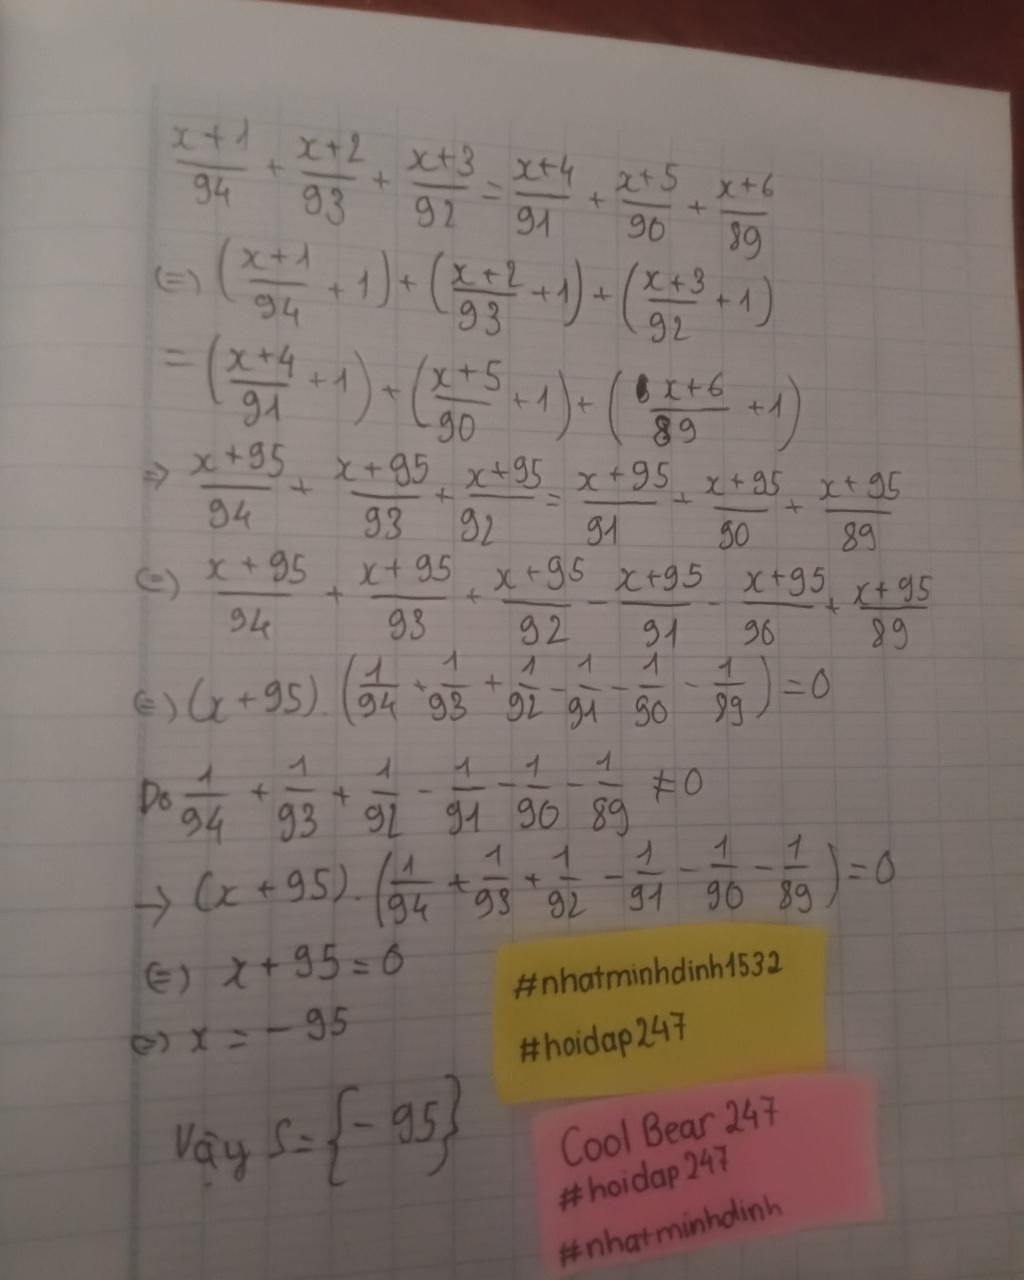 x+1/94 + x+2/93 + x+3/92 = x+4/91 + x+5/90 + x+6/89
(=) (x+1/94 + 1) + (x+2/93 + 1) + (x+3/92 + 1)
= (x+4/91 + 1) + (x+5/90 + 1) + (x+6/89 + 1)
=> x+95/94 + x+95/93 + x+95/92 = x+95/91 + x+95/90 + x+95/89
(=) x+95/94 + x+95/93 + x+95/92 - x+95/91 - x+95/90 + x+95/89
(=) (x+95).(1/94 + 1/93 + 1/92 - 1/91 - 1/90 - 1/89) = 0
Do 1/94 + 1/93 + 1/92 - 1/91 - 1/90 - 1/89 ≠ 0
→ (x+95).(1/94 + 1/93 + 1/92 - 1/91 - 1/90 - 1/89) = 0
(=) x+95 = 0
(=) x = -95
Vậy S = {-95}
#nhatminhdinh1532
#hoidap247
Cool Bear 247
#hoidap247
#nhatminhdinh